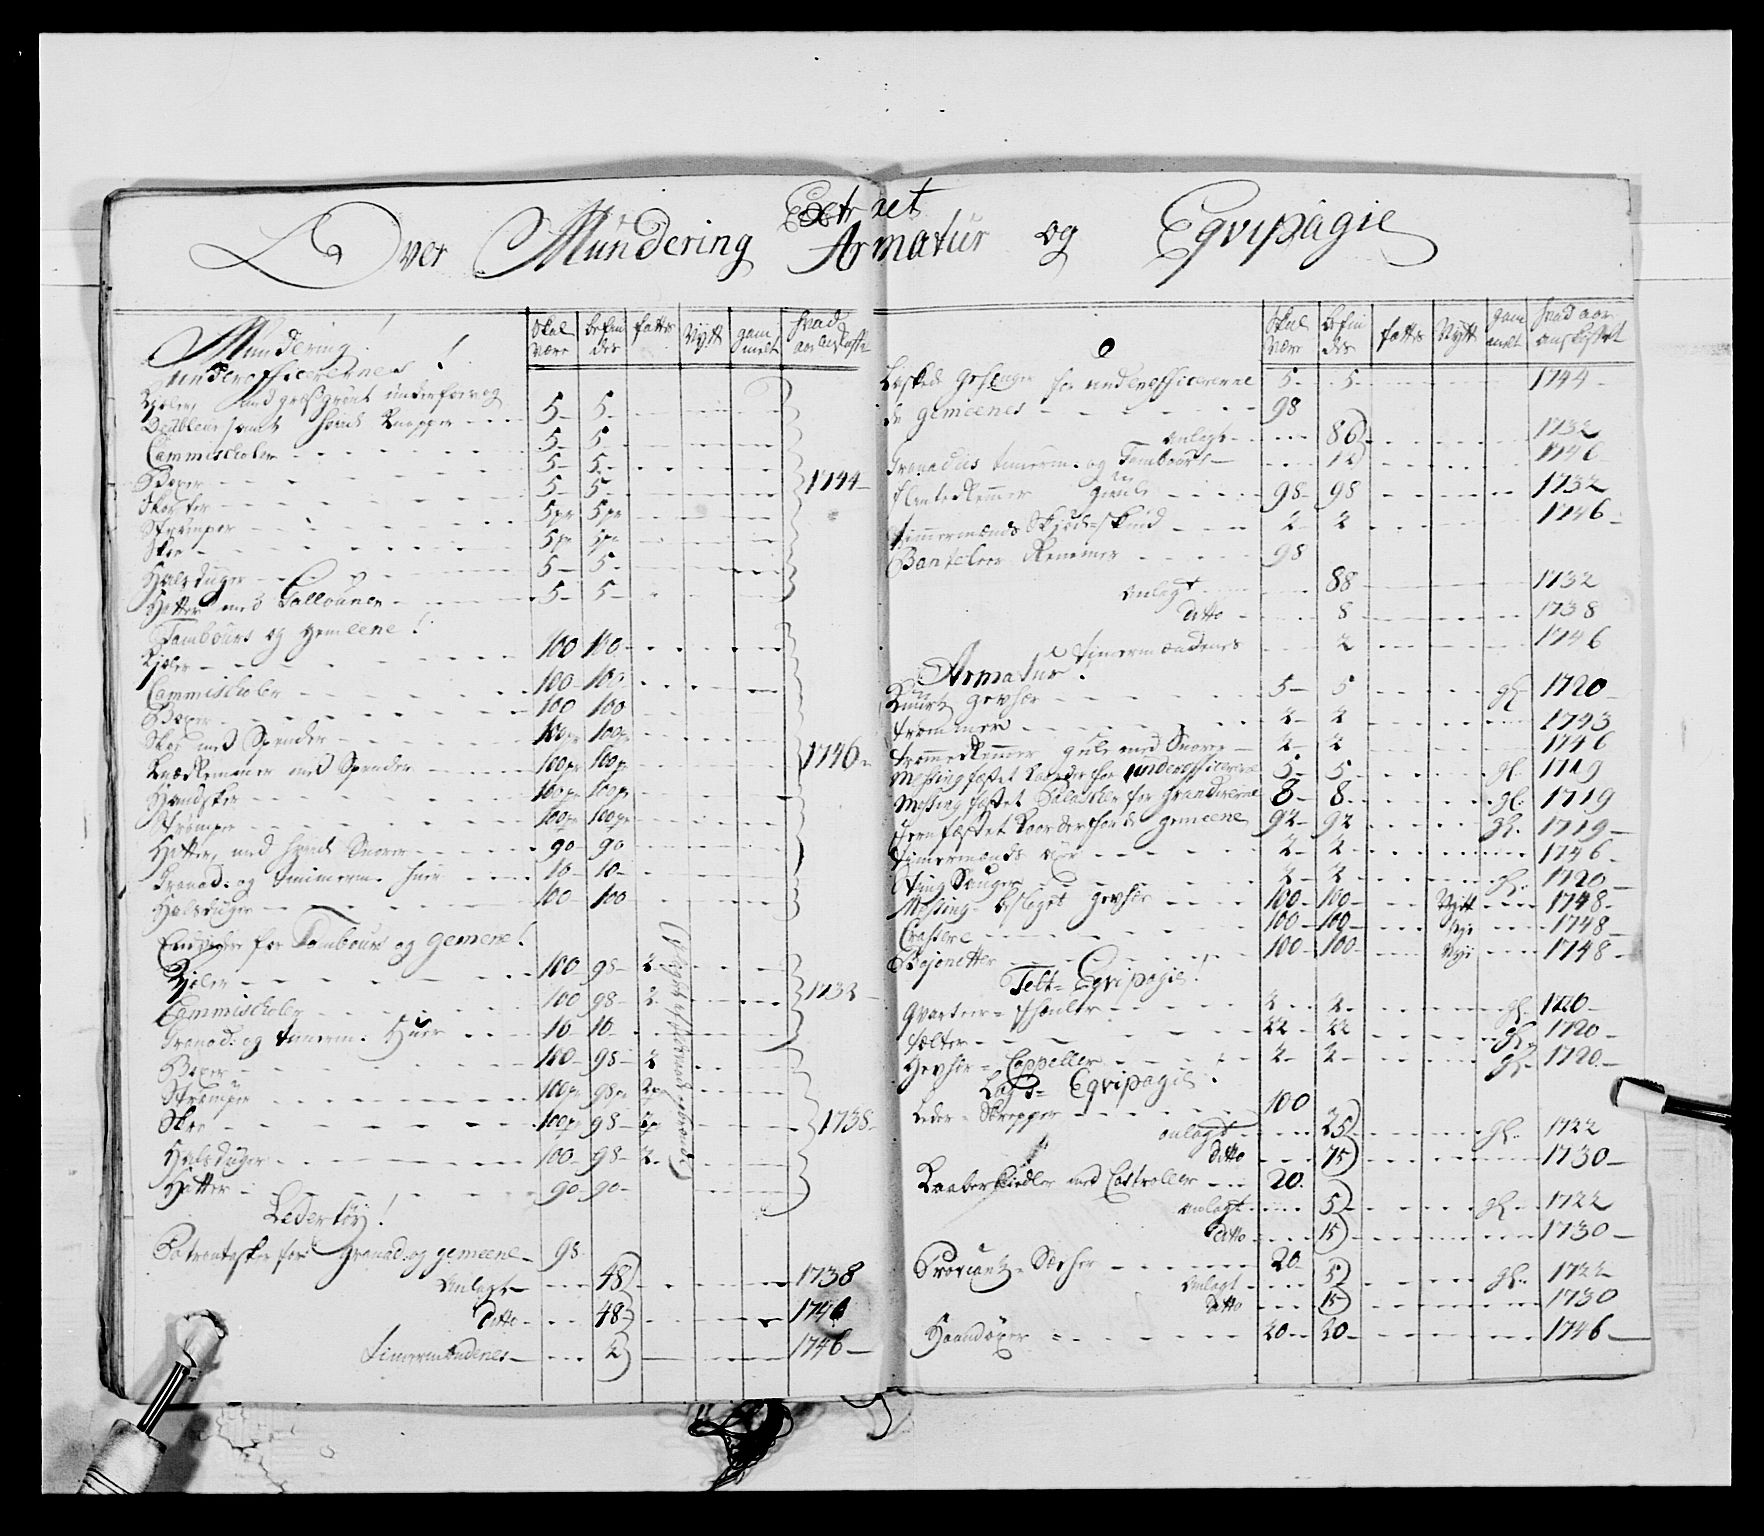 Extract
Over Mundering Armatur og Eqvipagie
Mundering!
Skal være
befindes
fattes
Nytt
gammelt
hvad aar
Underofficerernes!
Kjoler, med
samt hvide Knapper - - - 5 - 5 -
Cammisholer - - - 5 - 5 -
Buxer - - - 5 - 5 - - - 1744 -
Skiorter - - - 5 - 5 -
Strømper - - - 5 pr 5 pr
Skoe - - - 5 pr 5 pr
Halsduger - - - 5 - 5 -
Hatter med Gallouner - - - 5 - 5 -
Tambours og Gemeene!
Kjoler - - - 100 100 -
Cammisholer - - - 100 - 100 -
Buxer - - - 100 100
Skoe med Spender - - - 100 pr 100 pr - - - 1746 -
Knæeremmer med Spender - - - 100 pr 100 pr
Handsker - - - 100 pr 100 pr
Strømper - - - 100 pr 100 pr
Hatter, med hvide Snorer - - - 90 - 90
Granad: og timmerm. Huer - - - 10 - 10 -
Halsduger - - - 100 100
for Tambours og Gemene!
Kjoler - - - 100 98 - 2 -
Cammisholer - - - 100 98 - 2 - - - 1732 -
Granad: og timerm: Huer - - - 10 - 10 -
Buxer - - - 100 - 98 - 2
Strømper - - - 100 pr 98 pr 2 pr
Skoe - - - 100 pr 98 - 2 pr - - - 1738 -
Halsduger - - - 100 - 98 - 2 -
Hatter - - - 90 90 -
Ledertøy!
Patrontasker for Granad: og gemeene - 98
Anlagt - - - 48) - - - 1738
ditto - - - 48) - - - 1746
timermændenes - - - 2) - - - 1746 -
Skal være
befindes
fattes
Nytt
gammelt
hvad aar anskaffet
for underofficererne 5 - 5 - - - 1744 -
de gemeenes - - - 98
anlagt - - - 86) - - - 1732
Granadiis timerm. og Tambours - - - 12) - - - 1746
Flinteremmer gule - - - 98 - 98 - - - 1732
timmermænds Skiødskind - - - 2 - 2 - - - 1746 -
Banteleer Remmer - - - 98
anlagt - - - 88 - - - 1732
ditto - - - 8 - - - 1738
timermændenes - - - 2 - - - 1746
Armatur!
Kuurtz gevhær - - - 5 - 5 - - - gl. 1720 -
trommer - - - 2 - 2 - - - 1743
trommeremmer gule med Snorer - 2 - 2 - - - 1746
Messing fæstet kaarder for underofficererne 5 - 5 - - - gl. 1719
Messing fæstet for Granderene 8 - 8 - - - gl: 1719
Jern fæstet kaarder for de gemeene 92 - 92 - - - gl. 1719 -
timermænds - - - 2 - 2 - - - 1746 -
- - - 2 - 2 - - - gl. 1720 -
Messing beslaget gevhær - - - 100 - 100 - - - Nytt - - - 1748 -
- - - 100 - 100 - - - 1748 -
Bajonetter - - - 100 - 100 - - - 1748 -
Telt = Eqvipagie!
Qvarteer = - - - 2 - 2 - - - gl. 1720 -
tælter - - - 22 - 22 - - - gl. 1720 -
Gevhær = Cappeller - - - 2 - 2 - - - gl. 1720 -
Eqvipagie!
Leder = Skrepper - - - 100
anlagt - - - 25) - - - gl. 1722
ditto - - - 75) - - - 1730 -
Kaaberkiedler med Castroller - - - 20
anlagt - - - 5) - - - gl. 1722
ditto - - - 15) - - - 1730 -
Proviant = Sæcher - - - 20
anlagt - - - 5) - - - gl. 1722
ditto - - - 15) - - - 1730
Haandøxer - - - 20 - 20 - - - 1746 -